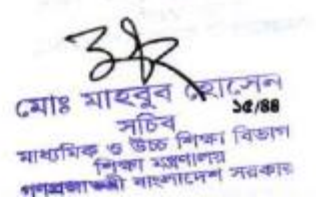 মোঃ মাহবুব হোসেন
১৫/৪৪
সচিব
মাধ্যমিক ও উচ্চ শিক্ষা বিভাগ
শিক্ষা মন্ত্রণালয়
গণপ্রজাতন্ত্রী বাংলাদেশ সরকার